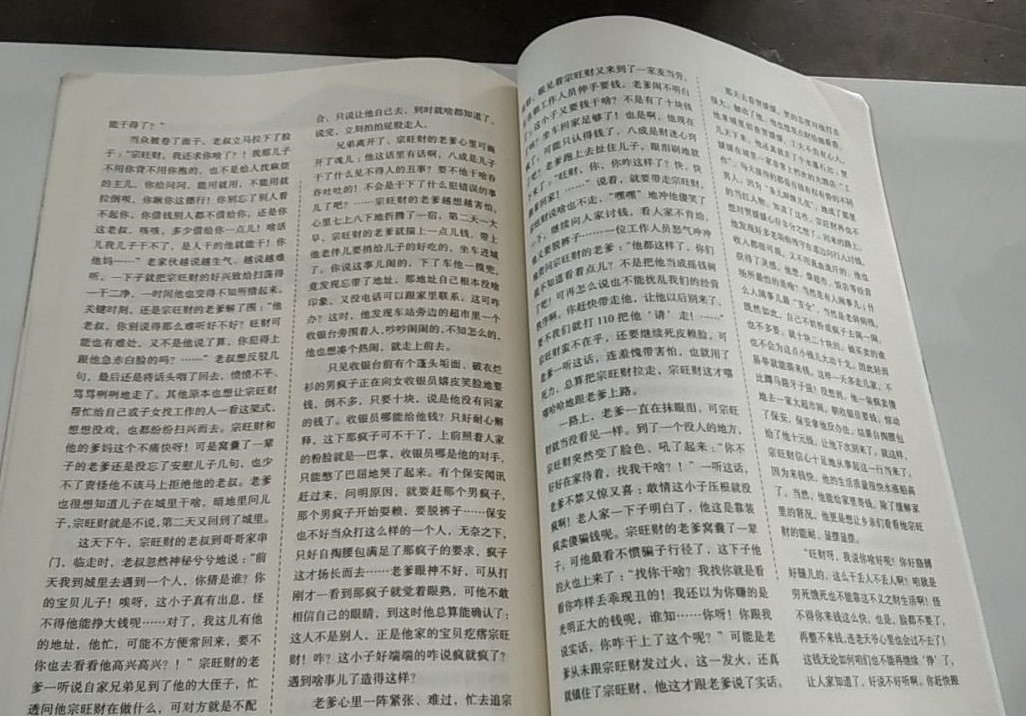 能干得了？”
当众被卷了面子，老叔立马拉下了脸
子：“宗旺财，我还求你啥了？！我那儿子
不用你背不用你抱的，也不是给人找麻烦
的主儿，你给问问，能用就用，不能用就
拉倒呗，你瞅你这德行！你别忘了别人看
不起你，你借钱别人都不借给你，还是你
这老叔，咳咳，多少借给你一点儿！啥活
儿我儿子干不了，是人干的他就能干！你
他妈——”老家伙越说越生气，越说越难
听，一下子就把宗旺财的好兴致给扫荡得
一干二净，一时间他也变得不知所措起来。
关键时刻，还是宗旺财的老爹解了围：“他
老叔，你别说得那么难听好不好！旺财可
能也有难处，又不是他说了算，你犯得上
跟他急赤白脸的吗？……”老叔想反驳几
句，最后还是将话头咽了回去，愤愤不平、
骂骂咧咧地走了。其他原本也想让宗旺财
帮忙给自己或子女找工作的人一看这架式，
想想没戏，也都纷纷扫兴而去。宗旺财和
他的爹妈这个不痛快呀！可是窝囊了一辈
子的老爹还是没忘了安慰儿子几句，也少
不了责怪他不该马上拒绝他的老叔。老爹
也很想知道儿子在城里干啥，暗地里问儿
子，宗旺财就是不说，第二天又回到了城里。
这天下午，宗旺财的老叔到哥哥家串
门，临走时，老叔忽然神秘兮兮地说：“前
天我到城里去遇到一个人，你猜是谁？你
的宝贝儿子！唉呀，这小子真有出息，怪
不得他能挣大钱呢……对了，我这儿有他
的地址，他忙，可能不方便常回来，要不
你也去看看他高兴高兴？！”宗旺财的老
爹一听说自家兄弟见到了他的大侄子，忙
透问他宗旺财在做什么，可对方就是不配
合，只说让他自己去，到时就啥都知道了，
说完，立刻拍拍屁股走人。
兄弟离开了，宗旺财的老爹心里可画
开了魂儿：他这话里有话啊，八成是儿子
干了什么见不得人的丑事？要不他干啥吞
吞吐吐的！不会是干下了什么犯错误的事
儿了吧？……宗旺财的老爹越想越害怕，
心里七上八下地折腾了一宿，第二天一大
早，宗旺财的老爹就揣上一点儿钱，带上
他老伴儿要捎给儿子的好吃的，坐车进城
了。你说这事儿闹的，下了车他一摸兜，
竟发现忘带了地址，那地址自己根本没啥
印象，又没电话可以跟家里联系，这可咋
办？这时，他发现车站旁边的超市里一个
收银台旁围着人，吵吵闹闹的，不知怎么的，
他也想凑个热闹，就走上前去。
只见收银台前有个蓬头垢面、破衣烂
衫的男疯子正在向女收银员嬉皮笑脸地要
钱，倒不多，只要十块，说是他没有回家
的钱了。收银员哪能给他钱？只好耐心解
释，这下那疯子可不干了，上前照着人家
的粉脸就是一巴掌，收银员哪是他的对手，
只能憋了巴屈地哭了起来。有个保安闻讯
赶过来，问明原因，就要赶那个男疯子，
那个男疯子开始耍赖、要脱裤子……保安
也不好当众打这么样的一个人，无奈之下，
只好自掏腰包满足了那疯子的要求，疯子
这才扬长而去……老爹眼神不好，可从打
刚才一看到那疯子就觉着眼熟，可他不敢
相信自己的眼睛，到这时他总算能确认了：
这人不是别人，正是他家的宝贝疙瘩宗旺
财！咋？这小子好端端的咋说疯就疯了？
遇到啥事儿了造得这样？
老爹心里一阵紧张、难过，忙去追宗
眼见着宗旺财又来到了一家麦当劳，
工作人员伸手要钱，老爹闹不明白
这小子又要钱干啥？不是有了十块钱
坐车回家足够了！也是啊，他现在
可能只认得钱了，八成是财迷心窍
了吧？老爹跑上去扯住儿子，眼泪刷地就
下来了：“旺财、你、你咋这样了？快，快
回家！……”说着，就要带走宗旺财，
宗旺财说啥也不走，“嘿嘿”地冲他傻笑了
一下，继续向人家讨钱，看人家不肯给，
又要脱裤子………一位工作人员怒气冲冲
责问宗旺财的老爹：“他都这样了，你们
不知道看着点儿？不是把他当成摇钱树
了吧！可再怎么说也不能扰乱我们的经营
秩序啊，你赶快带走他，让他以后别来了，
要不我们就打110把他‘请’走！……”
宗旺财蛮不在乎，还要继续死皮赖脸，可
老爹一听这话，连羞愧带害怕，也就用了
死力，总算把宗旺财拉走，宗旺财这才嘻
嘻哈哈地跟老爹上路。
一路上，老爹一直在抹眼泪，可宗旺
财就当没看见一样。到了一个没人的地方，
宗旺财突然变了脸色、吼了起来：“你不
好好在家待着，找我干啥？！”一听这话，
老爹不禁又惊又喜：敢情这小子压根就没
疯啊！老人家一下子明白了，他这是靠装
疯卖傻骗钱呢。宗旺财的老爹窝囊了一辈
子，可他最看不惯骗子行径了，这下子他
的火也上来了：“找你干啥？我找你就是看
看你咋样丢乖现丑的！我还以为你赚的是
光明正大的钱呢，谁知……你呀！你跟我
说实话，你咋干上了这个呢？”可能是老
爹从来没跟宗旺财发过火，这一发火，还真
就镇住了宗旺财，他这才跟老爹说了实话。
收入都很可观，又不用流血流汗的，他也
获得了灵感。他想，像超市、饭店等经营
场所最怕的是啥？当然是有人闹事儿；什
么人闹事儿最“安全”，当然是老弱病残。
既然如此，自己不妨扮成疯子去闹一闹，
也不多要，就十块二十块的，做买卖的谁
也不会为这点小钱儿大动干戈，因此轻而
易举就能搞来钱，这样一天多走几家，不
比蹲马路牙子强？没想到，他一装疯卖傻
地去一家大超市闹，朝收银员要钱，惊动
了保安，保安拿他没办法，结果自掏腰包
给了他十元钱，让他下次别来了，就这样，
宗旺财信心十足地从事起这一行当来了，
因为来钱快，他的生活质量很快水涨船高
了。当然，他能给家里寄钱，除了缓解家
里的窘况，他更是想让乡亲们看看他宗旺
财的能耐，显摆显摆。
“旺财呀，我说你啥好呢？你好胳膊
好腿儿的，这么干丢人不丢人啊？咱就是
穷死饿死也不能靠这不义之财生活啊！怪
不得你来钱这么快，也是，脸都不要了，
再整不来钱，连老天爷心里也会过不去了！
这钱无论如何咱们也不能再继续‘挣’了，
让人家知道了，好说不好听啊。你赶快跟